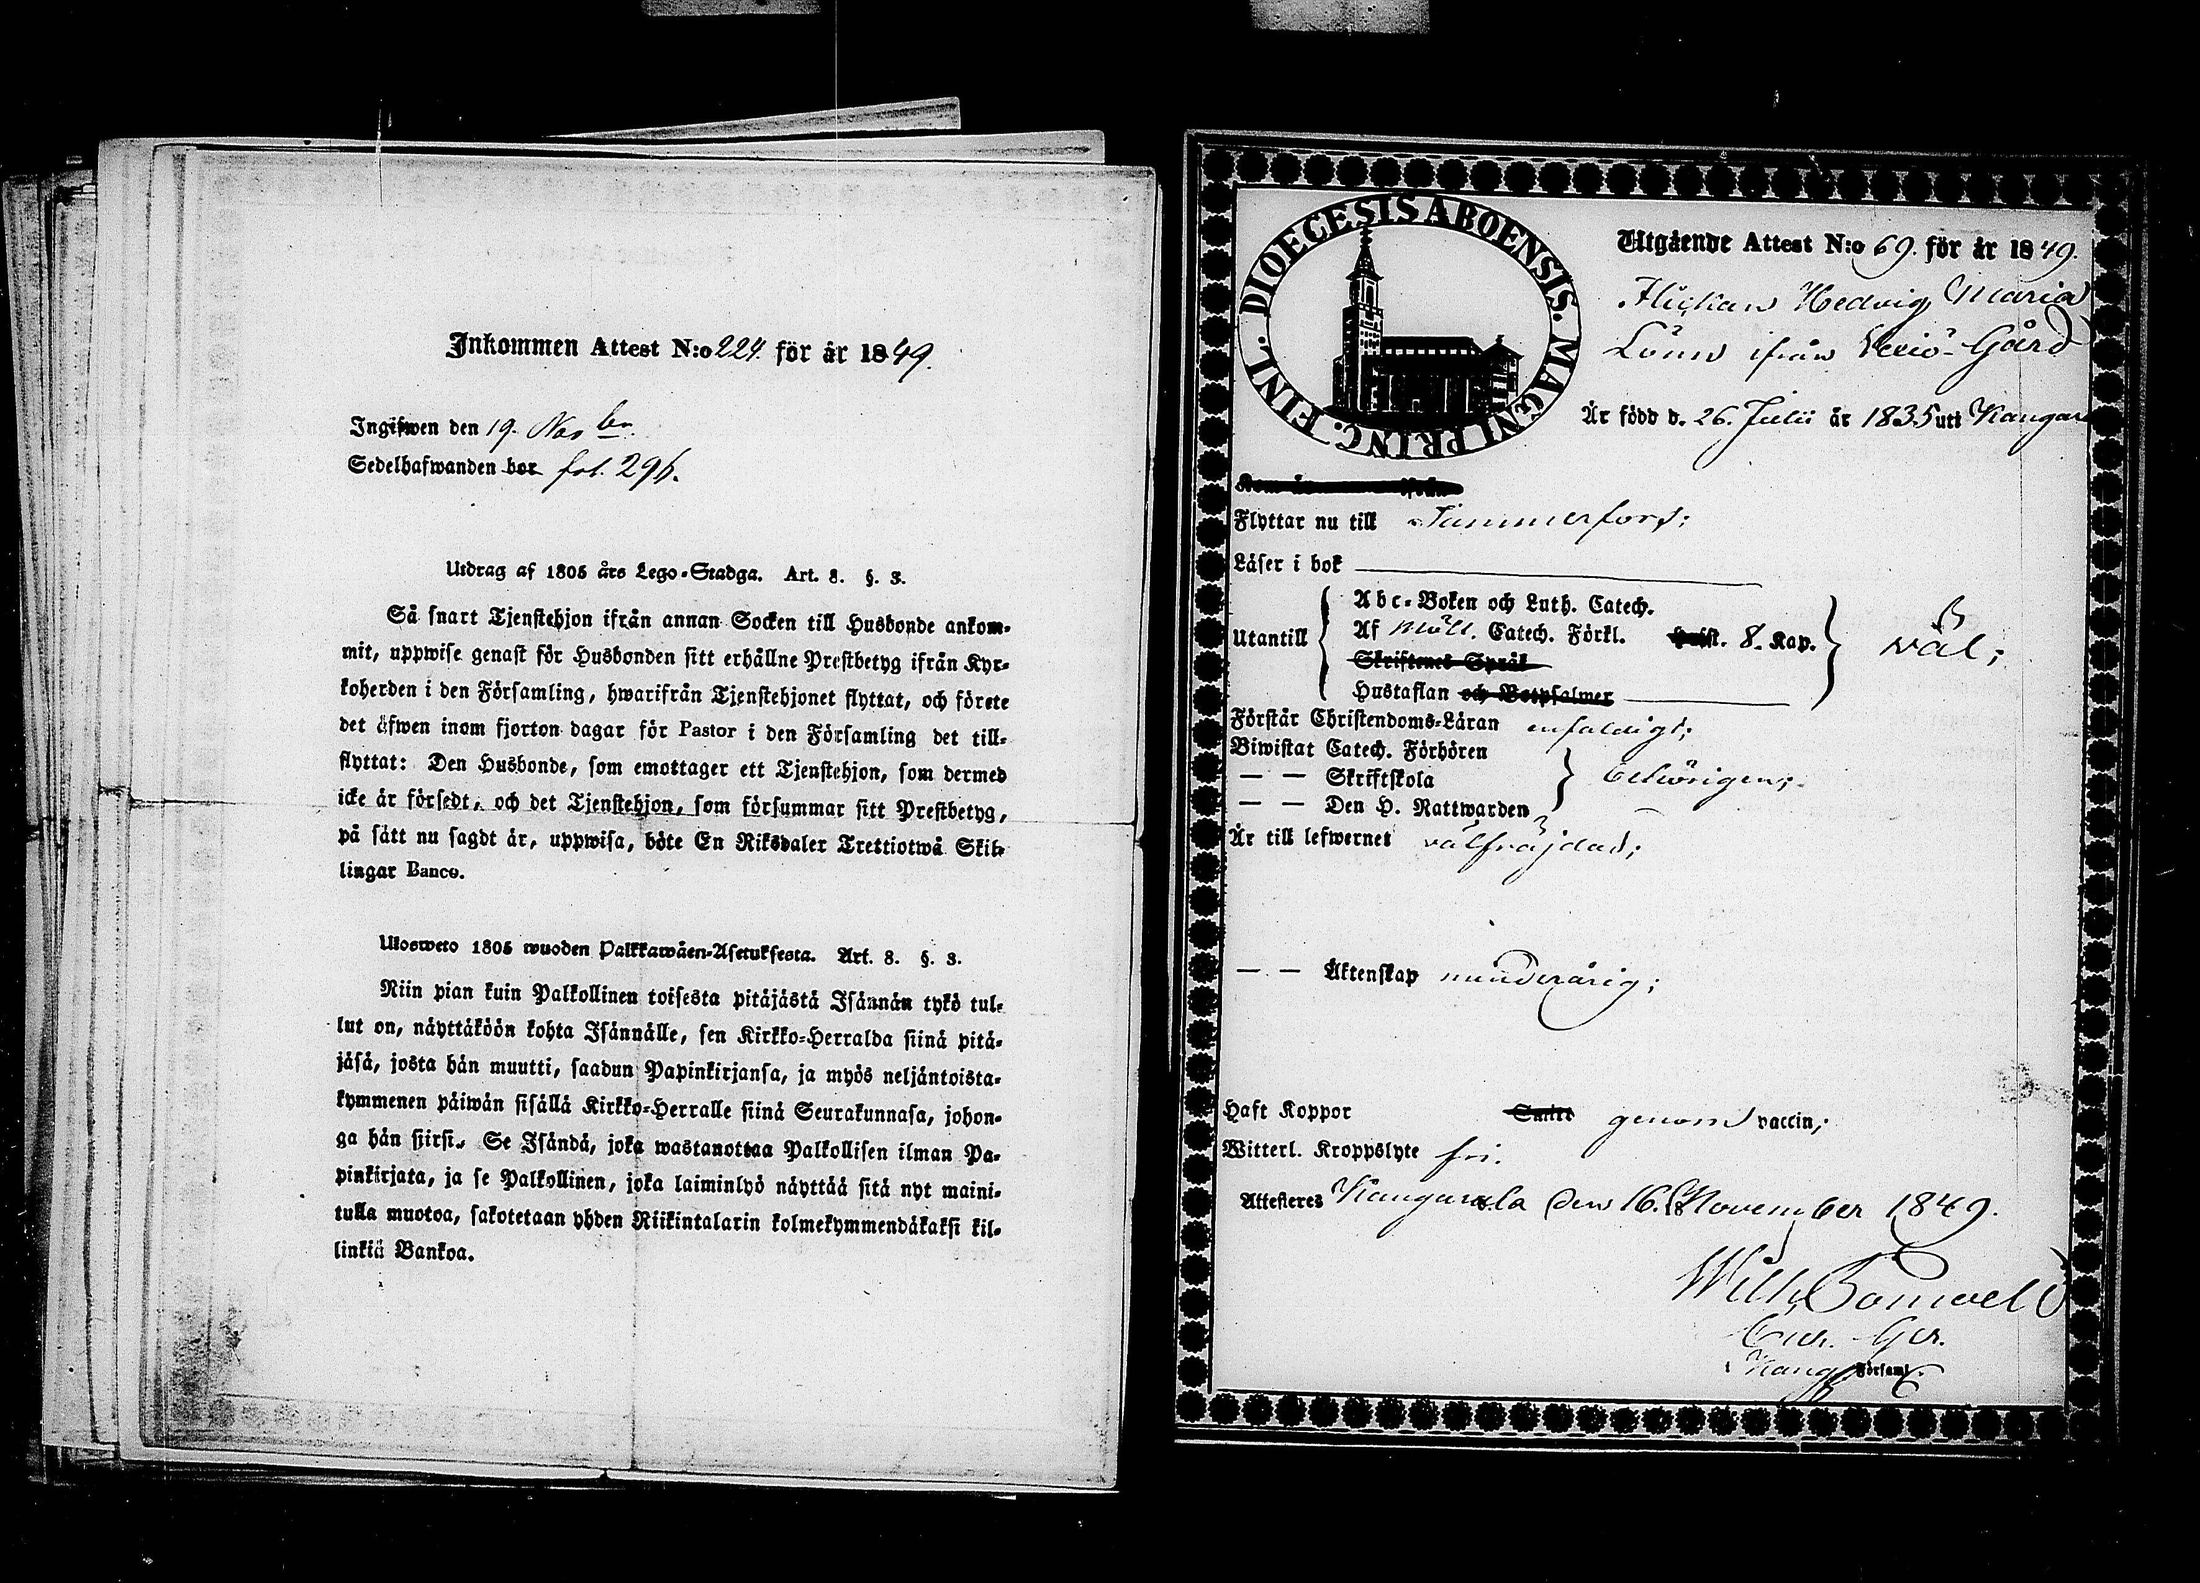 Inkommen Attest N:o 224. för år 1849.
Ingifwen den 19. Nov ber.
Sedelhafwanden bor fol. 296.
Utdrag af 1805 års Lego-Stadga. Art. 8. §. 3.
Så snart Tjenstehjon ifrån annan Socken till Husbonde ankom-
mit, uppwise genast för Husbonden sitt erhållne Prestbetyg ifrån Kyr-
koherden i den Församling, hwarifrån Tjenstehjonet flyttat, och förete
det äfwen inom fjorton dagar för Pastor i den Församling det till-
flyttat: Den Husbonde, som emottager ett Tjenstehjon, som dermed
icke är försedt, och det Tjenstehjon, som försummar sitt Prestbetyg,
på sätt nu sagdt är, uppwisa, böte En Riksdaler Trettiotwå Skil-
lingar Banco.
Ulosweto 1805 wuoden Palkkawäen-Asetuksesta. Art. 8. §. 3.
Niin pian kuin Palkollinen toisesta pitäjästä Isännän tykö tul-
lut on, näyttäköön kohta Isännälle, sen Kirkko-Herralda siinä pitä-
jäsä, josta hän muutti, saadun Papinkirjansa, ja myös neljäntoista-
kymmenen päiwän sisällä Kirkko-Herralle siinä Seurakunnasa, johon-
ga hän siirsi. Se Isändä, joka wastanottaa Palkollisen ilman Pa-
pinkirjata, ja se Palkollinen, joka laiminlyö näyttää sitä nyt maini-
tulla muotoa, sakotetaan yhden Riikintalarin kolmekymmendäkaksi kil-
linkiä Bankoa.
DIOECESIS ABOENSIS. MAGNI PRINC. FINL.
Utgående Attest N:o 69. för år 1849.
Flickan Hedvig Maria
Lönn ifrån Gård
Är född d. 26. Julii år 1835 uti Kangar
Flyttar nu till Tammerfors;
Läser i bok
Utantill
Abc-Boken och Luth. Catech.
Af Möll. Catech. Förkl. 8. Kap. väl;
Skriftenes Språk
Hustaflan och Botpsalmer
Förstår Christendoms-Läran enfaldigt;
Biwistat Catech. Förhören
— — Skriftskola behörigen;
— — Den H. Nattwarden
Är till lefwernet välfräjdad;
— — Äktenskap minderårig;
Haft Koppor genom vaccin;
Witterl. Kroppslyte fri.
Attesteres Kangasala den 16. November 1849.
Wilh.
Församl.